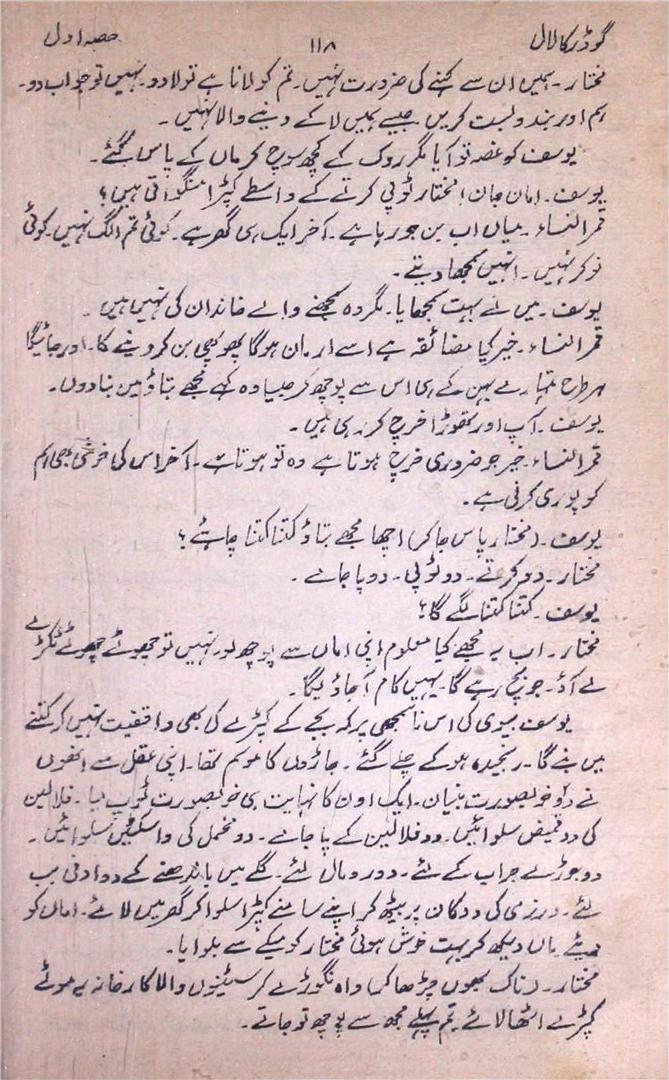 گوڈر کا لال ۱۱۸ حصہ اول
مختار۔ ہمیں ان سے کہنے کی ضرورت نہیں۔ تم کو لانا ہے تو لادو۔ نہیں تو جواب دو۔
ہم اور بندوبست کریں جیسے ہمیں لاکے دینے والا نہیں۔
یوسف کو غصہ تو آیا مگر روک کے کچھ سوچ کر ماں کے پاس گئے۔
یوسف۔ اماں جان! مختار ٹوپی کرتے کے واسطے کپڑا منگواتی ہیں؟
قمر النساء۔ میاں اب بن جو رہا ہے۔ آخر ایک ہی گھر ہے۔ کوئی تم الگ نہیں۔ کوئی
نوکر نہیں۔ انہیں سمجھا دیتے۔
یوسف۔ میں نے بہت سمجھایا۔ مگر وہ سمجھنے والے خاندان کی نہیں ہیں۔
قمر النساء۔ خیر کیا مضائقہ ہے اسے ارمان ہوگا پھوپھی بن کر دینے کا۔ اور جائیگا
ہر طرح تمہارے یہیں کے ہی اس سے پوچھ کر جیسا وہ کہے مجھے بتاؤ میں بنادوں۔
یوسف۔ آپ اور تھوڑا خرچ کر رہی ہیں۔
قمر النساء۔ خیر جو ضروری خرچ ہوتا ہے وہ تو ہوتا ہے۔ آخر اس کی خوشی بھی ہم
کو پوری کرنی ہے۔
یوسف۔ (مختار پاس جاکر) اچھا مجھے بتاؤ کتنا کتنا چاہئے؟
مختار۔ دو کرتے۔ دو ٹوپی۔ دو پاجامے۔
یوسف۔ کتنا کتنا لگے گا؟
مختار۔ اب یہ مجھے کیا معلوم اپنی اماں سے پوچھ لو۔ نہیں تو چھوٹے چھوٹے ٹکڑے
لے آؤ۔ جو بچ رہے گا یہیں کام آجاویگا۔
یوسف بیوی کی اس ناسمجھی پر کہ بچے کے کپڑے کی بھی واقفیت نہیں کہ کتنے
میں بنے گا۔ رنجیدہ ہوکے چلے گئے۔ جاڑوں کا موسم تھا۔ اپنی عقل سے انھوں
نے دو خوبصورت بنیان۔ ایک اون کا نہایت ہی خوبصورت ٹوپ لیا۔ فلالین
کی دو قمیض سلوائیں۔ دو فلالین کے پاجامے۔ دو مخمل کی واسکٹیں سلوائیں۔
دو جوڑے جراب کے لئے۔ دو رومال لئے۔ گلے میں باندھنے کے دو اونی بب
لئے۔ درزی کی دوکان پر بیٹھ کر اپنے سامنے کپڑا سلوا کر گھر میں لائے۔ اماں کو
دیئے ماں دیکھ کر بہت خوش ہوئی مختار کو میکے سے بلوایا۔
مختار۔ (ناک بھوں چڑھا کر) واہ نگوڑے کرسٹینوں والا کارخانہ یہ موئے
کپڑے اٹھا لائے۔ تم پہلے مجھ سے پوچھ تو جاتے۔